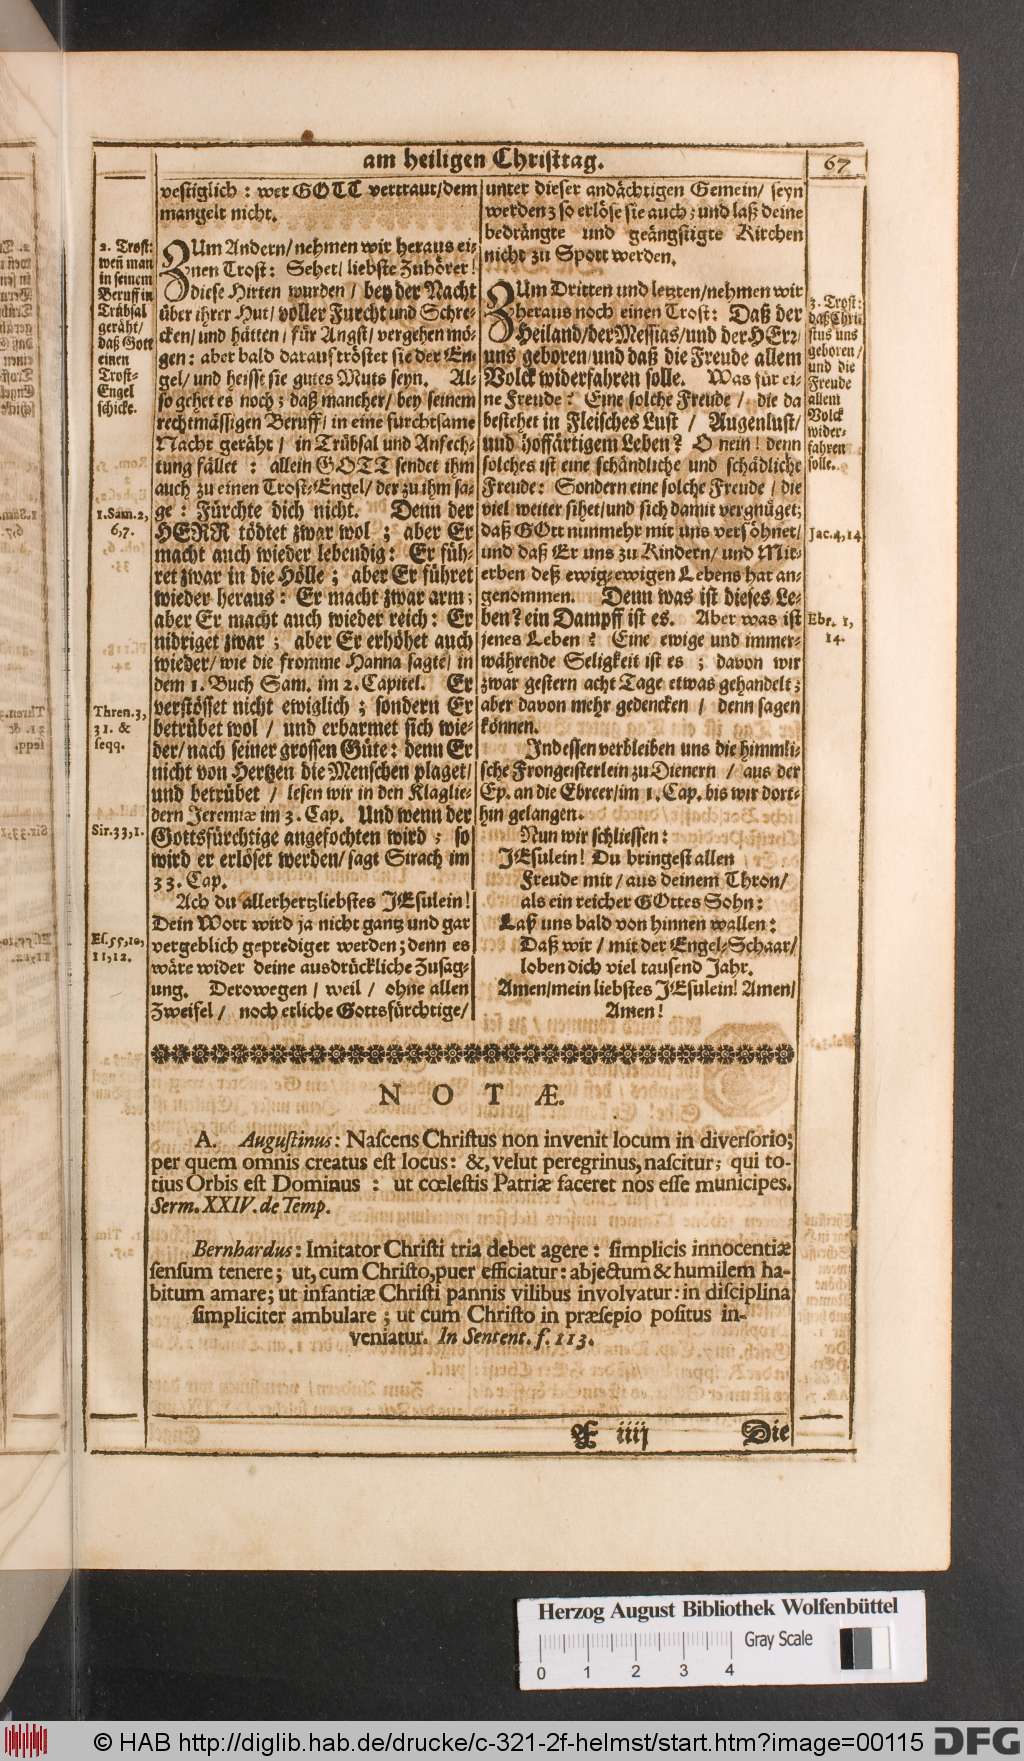 am heiligen Christtag.
67
vestiglich: wer GOTT vertraut/dem
mangelt nicht.
2. Trost:
weñ man
in seinem
Beruff in
Trübsal
geräht/
daß Gott
einen
Trost-
Engel
schicke.
ZUm Andern/nehmen wir heraus ei-
nen Trost: Sehet/ liebste Zuhörer!
diese Hirten wurden / bey der Nacht
über ihrer Hut/ voller Furcht und Schre-
cken/ und hätten / für Angst/ vergehen mö-
gen: aber bald darauf tröstet sie der En-
gel/ und heisse sie gutes Muts seyn. Al-
so gehet es noch; daß mancher/ bey seinem
rechtmässigen Beruff/ in eine furchtsame
Nacht geräht / in Trübsal und Anfech-
tung fället : allein GOTT sendet ihm
auch zu einen Trost-Engel/ der zu ihm sa-
ge : Fürchte dich nicht. Denn der
HERR tödtet zwar wol ; aber Er
macht auch wieder lebendig: Er füh-
ret zwar in die Hölle ; aber Er führet
wieder heraus: Er macht zwar arm;
aber Er macht auch wieder reich: Er
nidriget zwar ; aber Er erhöhet auch
wieder/ wie die fromme Hanna sagte/ in
dem 1. Buch Sam. im 2. Capitel. Er
verstösset nicht ewiglich ; sondern Er
betrübet wol / und erbarmet sich wie-
der/ nach seiner grossen Güte: denn Er
nicht von Hertzen die Menschen plaget/
und betrübet / lesen wir in den Klaglie-
dern Jeremiæ im 3. Cap. Und wenn der
Gottsfürchtige angefochten wird ; so
wird er erlöset werden/ sagt Sirach im
33. Cap.
1. Sam. 2,
6, 7.
Thren. 3,
31. &
seqq.
Sir. 33, 1.
Ach du allerhertzliebstes JEsulein!
Dein Wort wird ja nicht gantz und gar
vergeblich geprediget werden; denn es
wäre wider deine ausdrückliche Zusag-
ung. Derowegen / weil / ohne allen
Zweifel / noch etliche Gottsfürchtige/
Es. 55, 10,
11, 12.
unter dieser andächtigen Gemein/ seyn
werden; so erlöse sie auch; und laß deine
bedrängte und geängstigte Kirchen
nicht zu Spott werden.
ZUm Dritten und letzten/nehmen wir
heraus noch einen Trost: Daß der
Heiland/der Messias/und der HErr/
uns geboren/und daß die Freude allem
Volck widerfahren solle. Was für ei-
ne Freude? Eine solche Freude / die da
bestehet in Fleisches Lust / Augenlust/
und hoffärtigem Leben? O nein! denn
solches ist eine schändliche und schädliche
Freude: Sondern eine solche Freude / die
viel weiter sihet/ und sich damit vergnüget;
daß GOtt nunmehr mit uns versöhnet/
und daß Er uns zu Kindern/ und Mit-
erben deß ewig-ewigen Lebens hat an-
genommen. Denn was ist dieses Le-
ben? ein Dampff ist es. Aber was ist
jenes Leben? Eine ewige und immer-
währende Seligkeit ist es ; davon wir
zwar gestern acht Tage etwas gehandelt;
aber davon mehr gedencken / denn sagen
können.
3. Trost:
daß Chri-
stus uns
geboren/
und die
Freude
allem
Volck
wider-
fahren
solle.
Jac. 4, 14
Ebr. 1,
14.
Indessen verbleiben uns die himmli-
sche Frongeisterlein zu Dienern / aus der
Ep. an die Ebreer/im 1. Cap. bis wir dort-
hin gelangen.
Nun wir schliessen:
JEsulein! Du bringest allen
Freude mit/ aus deinem Thron/
als ein reicher GOttes Sohn:
Laß uns bald von hinnen wallen:
Daß wir / mit der Engel-Schaar/
loben dich viel tausend Jahr.
Amen/mein liebstes JEsulein! Amen/
Amen!
NOTÆ.
A. Augustinus: Nascens Christus non invenit locum in diversorio;
per quem omnis creatus est locus: &, velut peregrinus, nascitur; qui to-
tius Orbis est Dominus : ut cœlestis Patriæ faceret nos esse municipes.
Serm. XXIV. de Temp.
Bernhardus: Imitator Christi tria debet agere: simplicis innocentiæ
sensum tenere; ut, cum Christo, puer efficiatur: abjectum & humilem ha-
bitum amare; ut infantiæ Christi pannis vilibus involvatur: in disciplina
simpliciter ambulare ; ut cum Christo in præsepio positus in-
veniatur. In Sentent. f. 113.
F iiij
Die
Herzog August Bibliothek Wolfenbüttel
Gray Scale
0 1 2 3 4
© HAB http://diglib.hab.de/drucke/c-321-2f-helmst/start.htm?image=00115
DFG